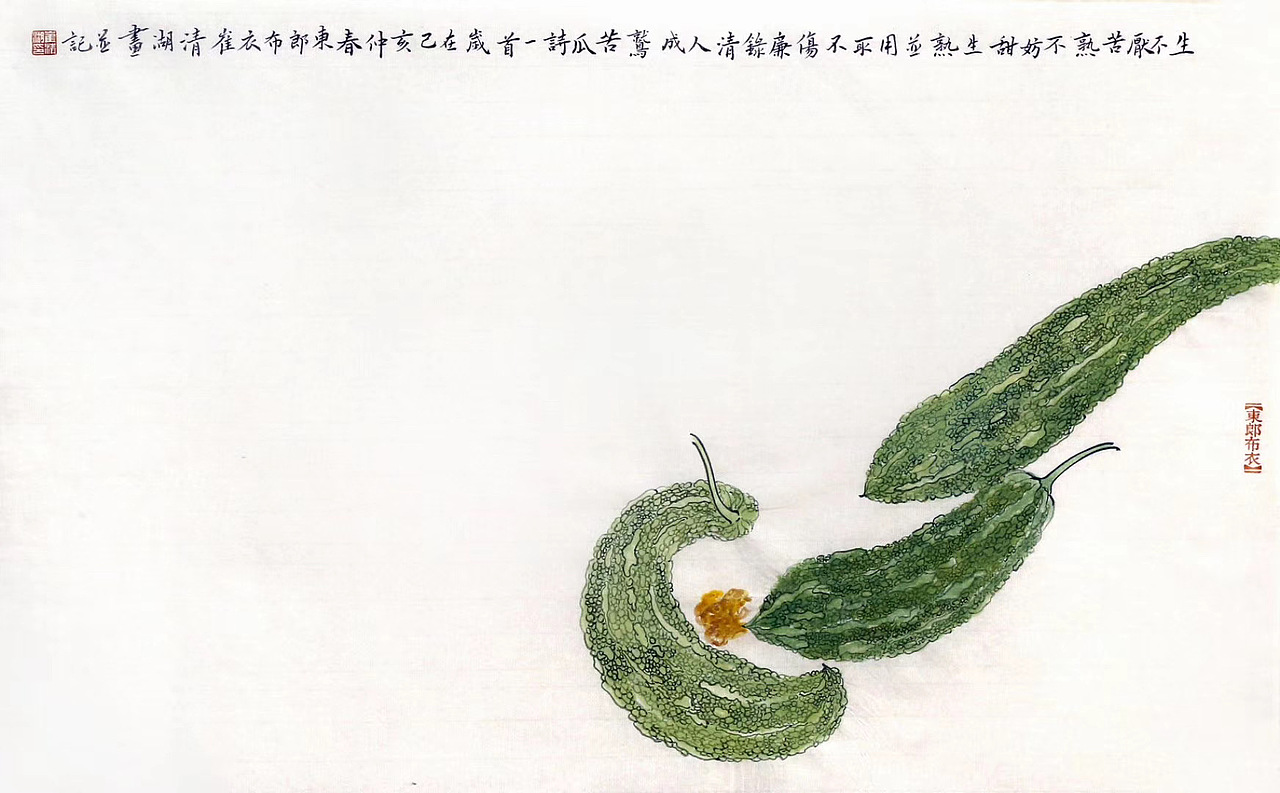 生不厭苦熟不妨甜生熟並用取不傷廉錄清人成鷲苦瓜詩一首歲在己亥仲春東郎布衣崔清湖畫並記
【東郎布衣】